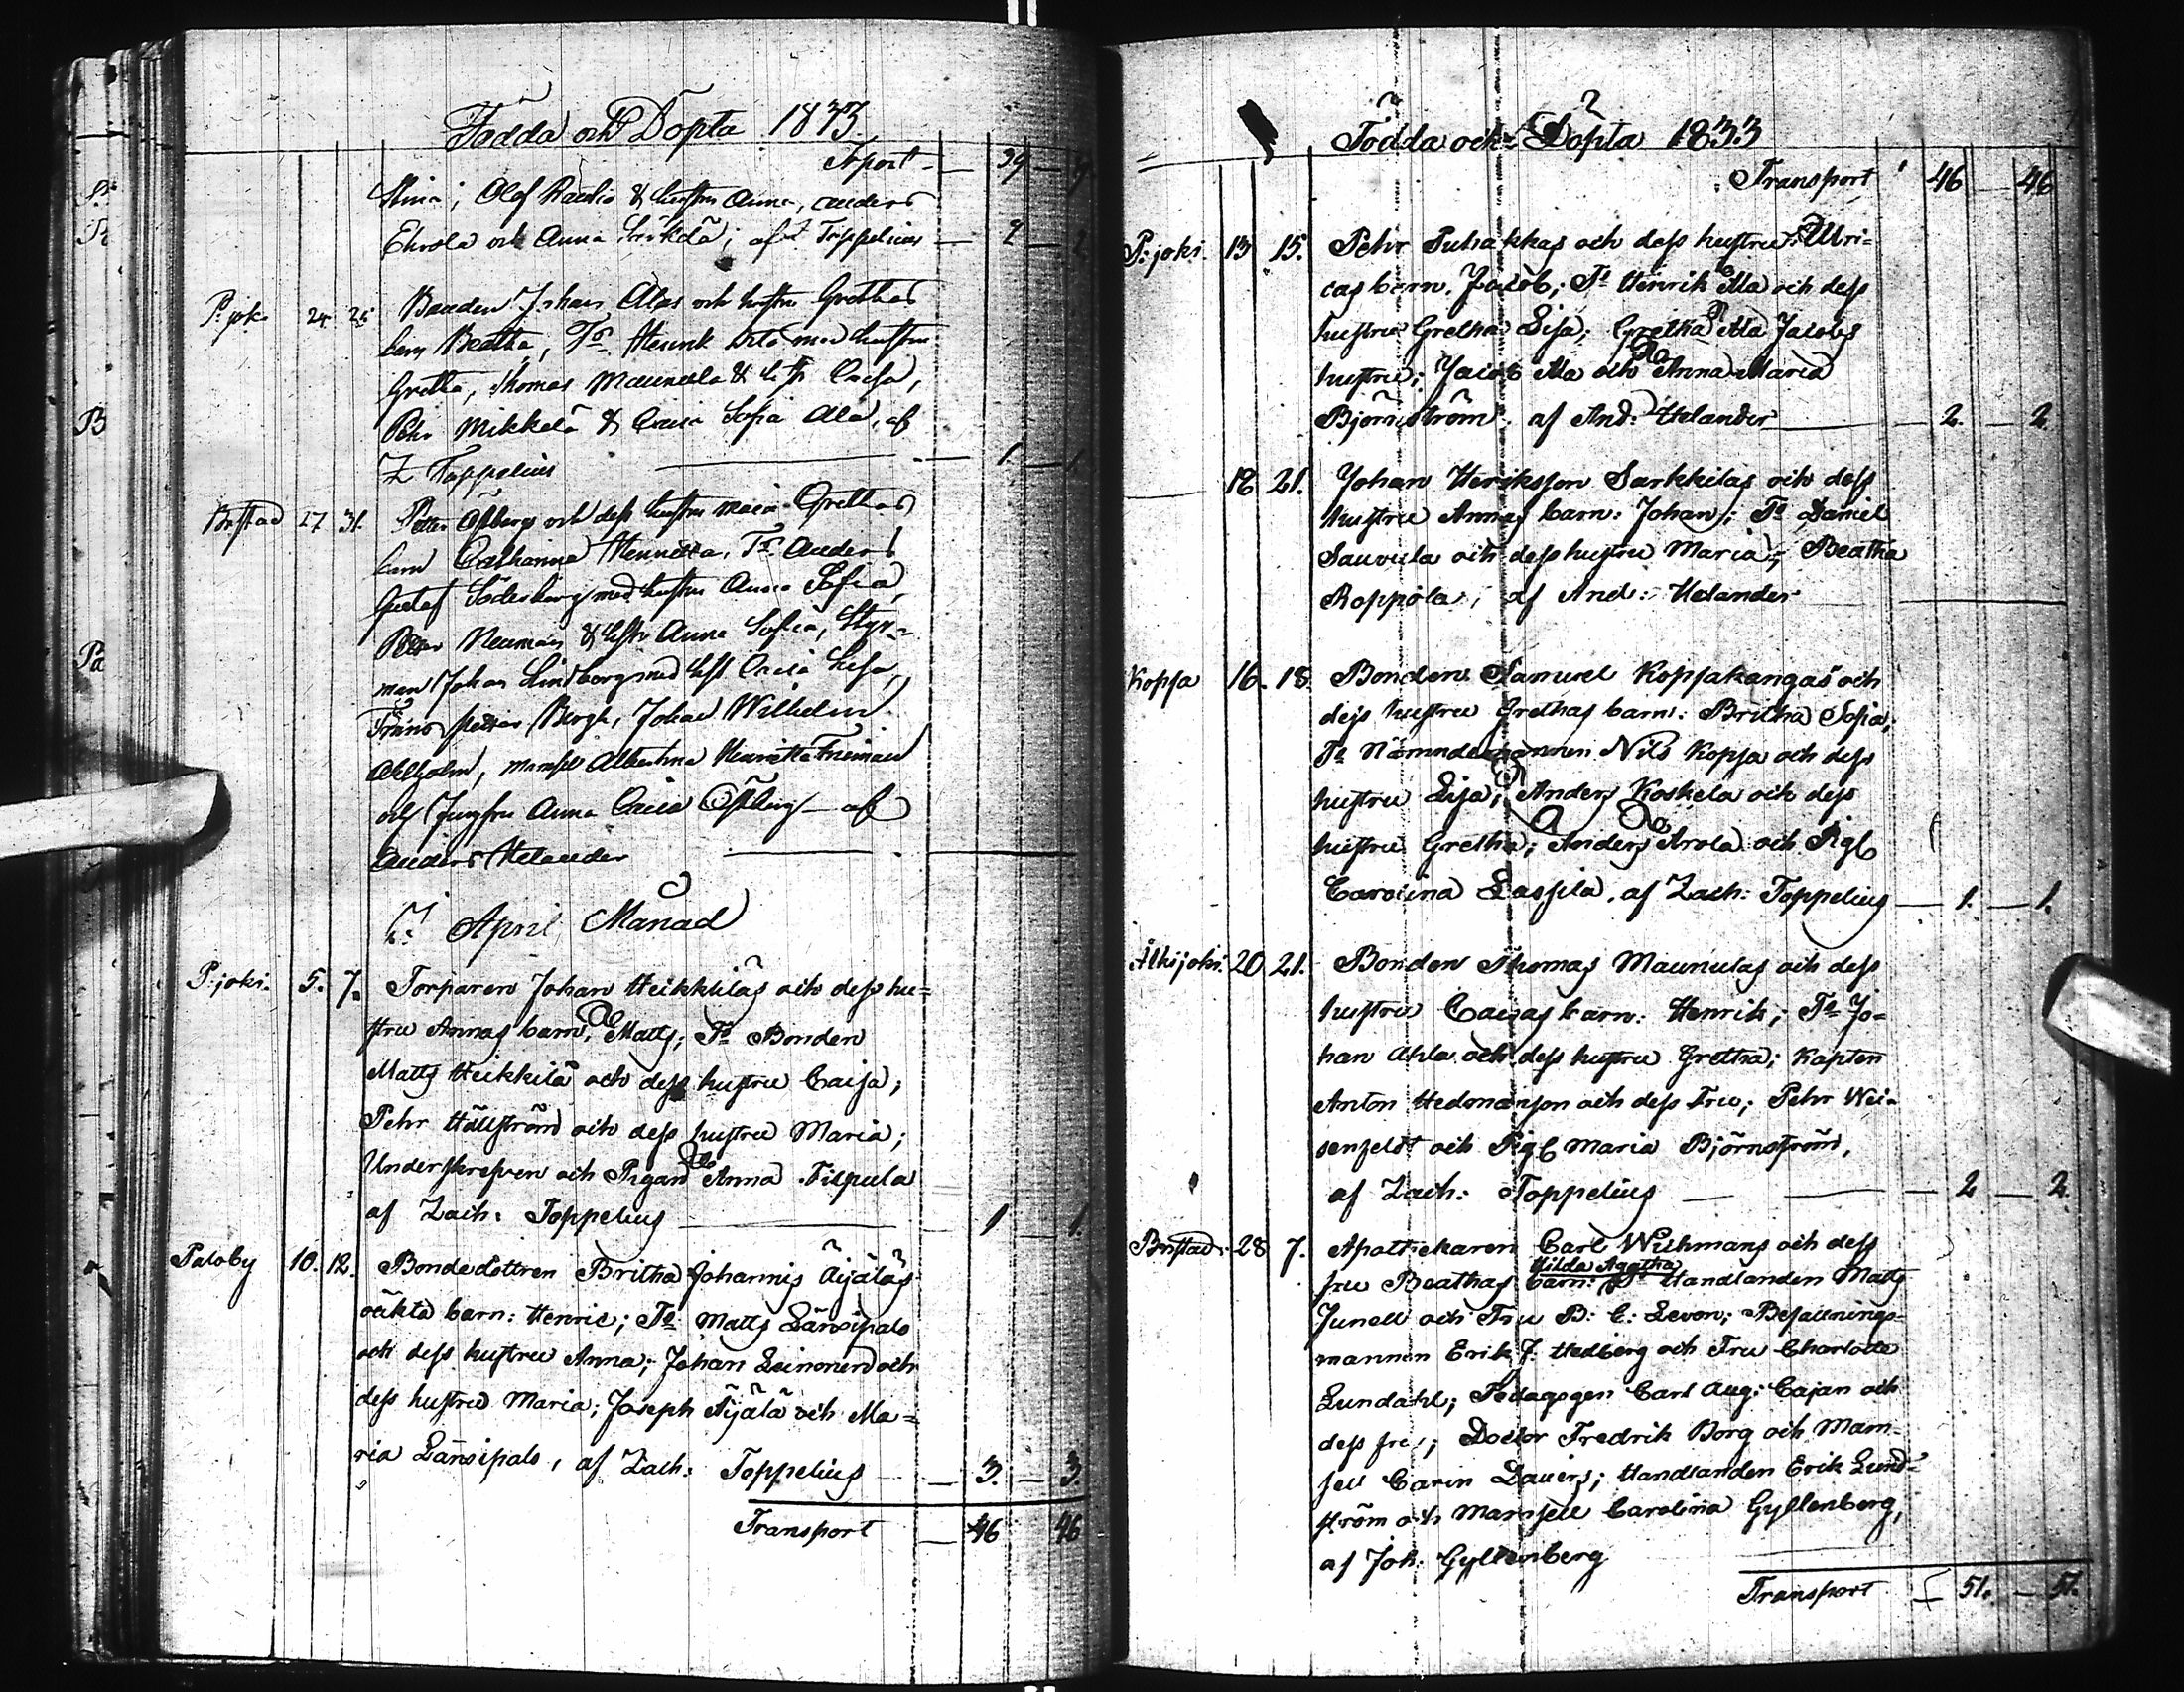 Födda och Döpta 1833.
Tsport — 39 —
Stina; Olof Raulio & hustru Anna, Anders
Ehrola och Anna Särkelä; af Z Toppelius — 2 — 2
P:joki 24 25 Bonden Johan Alas och hustru Grethas
barn Beatha, Ts. Henrik Ala med hustru
Gretha, Thomas Maunula & hstr Caisa,
Pehr Mikkelä & Caisa Sofia Ala, af
Z Toppelius — 1 — 1
Brstad 27 31. Petter Östbergs och dess hustru Maria Grethas
barn Catharina Henrietta, Ts. Anders
Gustaf Söderberg med hustru Anna Sofia,
Petter Neuman & hstr Anna Sofia, Styr-
man Johan Lindberg med hst Caisa Lisa,
Frans Petter Bergh, Johan Wilhelm
Ahlholm, Mamsel Albertina Henrietta Freiman
och Jungfru Anna Caisa Östling — af
Anders Helander
I April Månad
P:joki. 5. 7. Torparen Johan Heikkiläs och dess hu=
stru Annas barn: Matts; Ts Bonden
Matts Heikkilä och dess hustru Caisa;
Pehr Hällström och dess hustru Maria;
Underskrefven och Pigan Anna Filpula
af Zach: Toppelius — 1 1.
Paloby 10. 12. Bondedottren Britha Johannis Äijäläs
oäkta barn: Henric; Ts: Matts Länsipalo
och dess hustru Anna; Johan Leinonen och
dess hustru Maria; Joseph Äijälä och Ma=
ria Länsipalo, af Zach: Toppelius — 3. — 3.
Transport — 46 46
Födda och Döpta 1833
Transport 46 — 46
P:joki. 13 15. Pehr Puhakkas och dess hustru Ulri=
cas barn. Jacob; Ts Henrik Ala och dess
hustru Gretha Lisa; Gretha Ala Jacobs
hustru; Jacob Ala och Anna Maria
Björnström. af And: Helander — 2. — 2.
18 21. Johan Henriksson Sarkkilas och dess
hustru Annas barn: Johan; Ts Daniel
Sauvula och dess hustru Maria; Beatha
Roppola; af And: Helander
Kopsa 16. 18. Bonden Samuel Kopsakangas och
dess hustru Grethas barn: Britha Sofia;
Ts Nämndemannen Nils Kopsa och dess
hustru Lisa; Anders Koskela och dess
hustru Gretha; Anders Arola och Pig:
Carolina Lassila. af Zach: Toppelius — 1. — 1.
20 21. Bonden Thomas Maunulas och dess
hustru Caisas barn: Henrik; Ts Jo=
han Ahla och dess hustru Gretha; Kapten
Anton Hedmanson och dess Fru; Pehr Wei-
senfeldt och Pig: Maria Björnström,
af Zach: Toppelius — 2 — 2.
Brstad. 28 7. Apothekaren Carl Wichmans och dess
Hilda Agatha
fru Beathas barn: Ts Handlanden Matts
Junell och Fru B: C: Levon; Befallnings-
mannen Erik J. Hedberg och Fru Charlotte
Lundahl; Pedagogen Carl Aug: Cajan och
dess fru; Doctor Fredrik Borg och Mam-
sell Carin Lauers; Handlanden Erik Lund-
ström och Mamsell Carolina Gyllenberg,
af Joh: Gyllenberg
Transport 51. — 51.